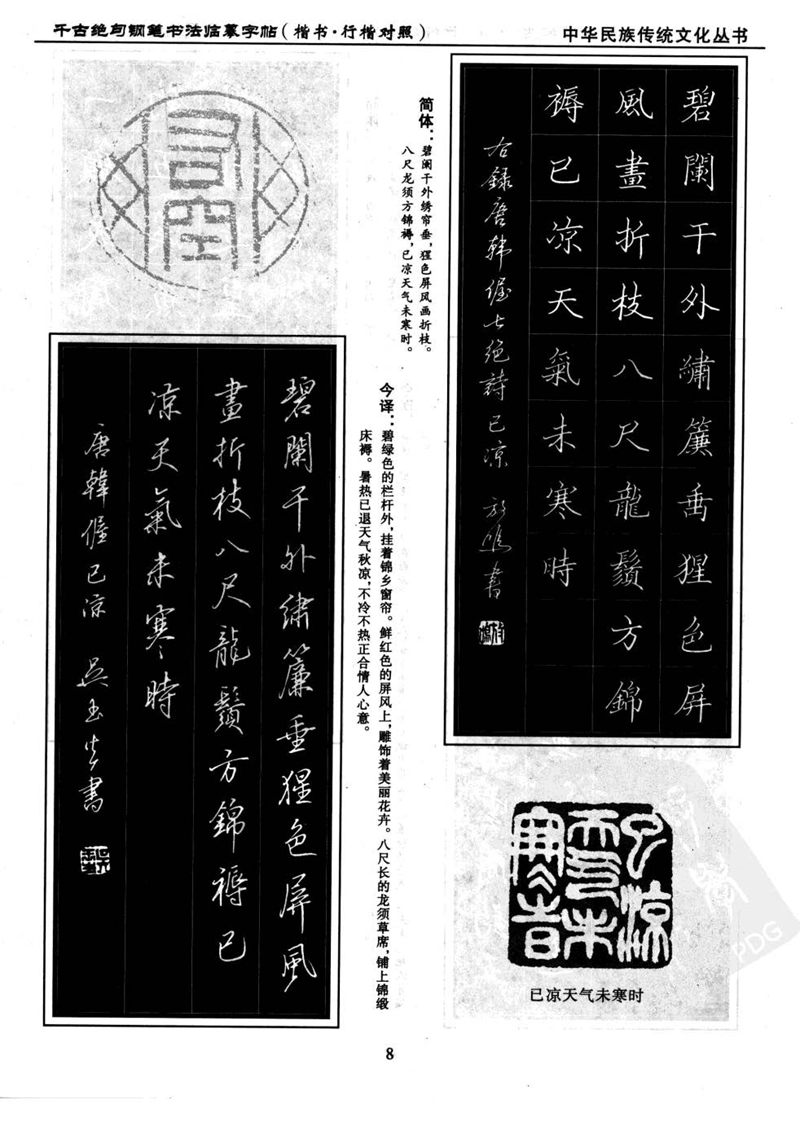 千古绝句钢笔书法临摹字帖（楷书·行楷对照）
中华民族传统文化丛书
碧闌干外繡簾垂猩色屏
風畫折枝八尺龍鬚方錦
褥已凉天氣未寒時
右録唐韩偓七绝詩已凉
書
简体：碧阑干外绣帘垂，猩色屏风画折枝。
八尺龙须方锦褥，已凉天气未寒时。
今译：碧绿色的栏杆外，挂着锦乡窗帘。鲜红色的屏风上，雕饰着美丽花卉。八尺长的龙须草席，铺上锦缎
床褥。暑热已退天气秋凉，不冷不热正合情人心意。
司空
碧闌干外繡簾垂猩色屏風
畫折枝八尺龍鬚方錦褥已
凉天氣未寒時
唐韓偓已凉
吴玉生書
已凉
天气未
寒时
已凉天气未寒时
8
PDG